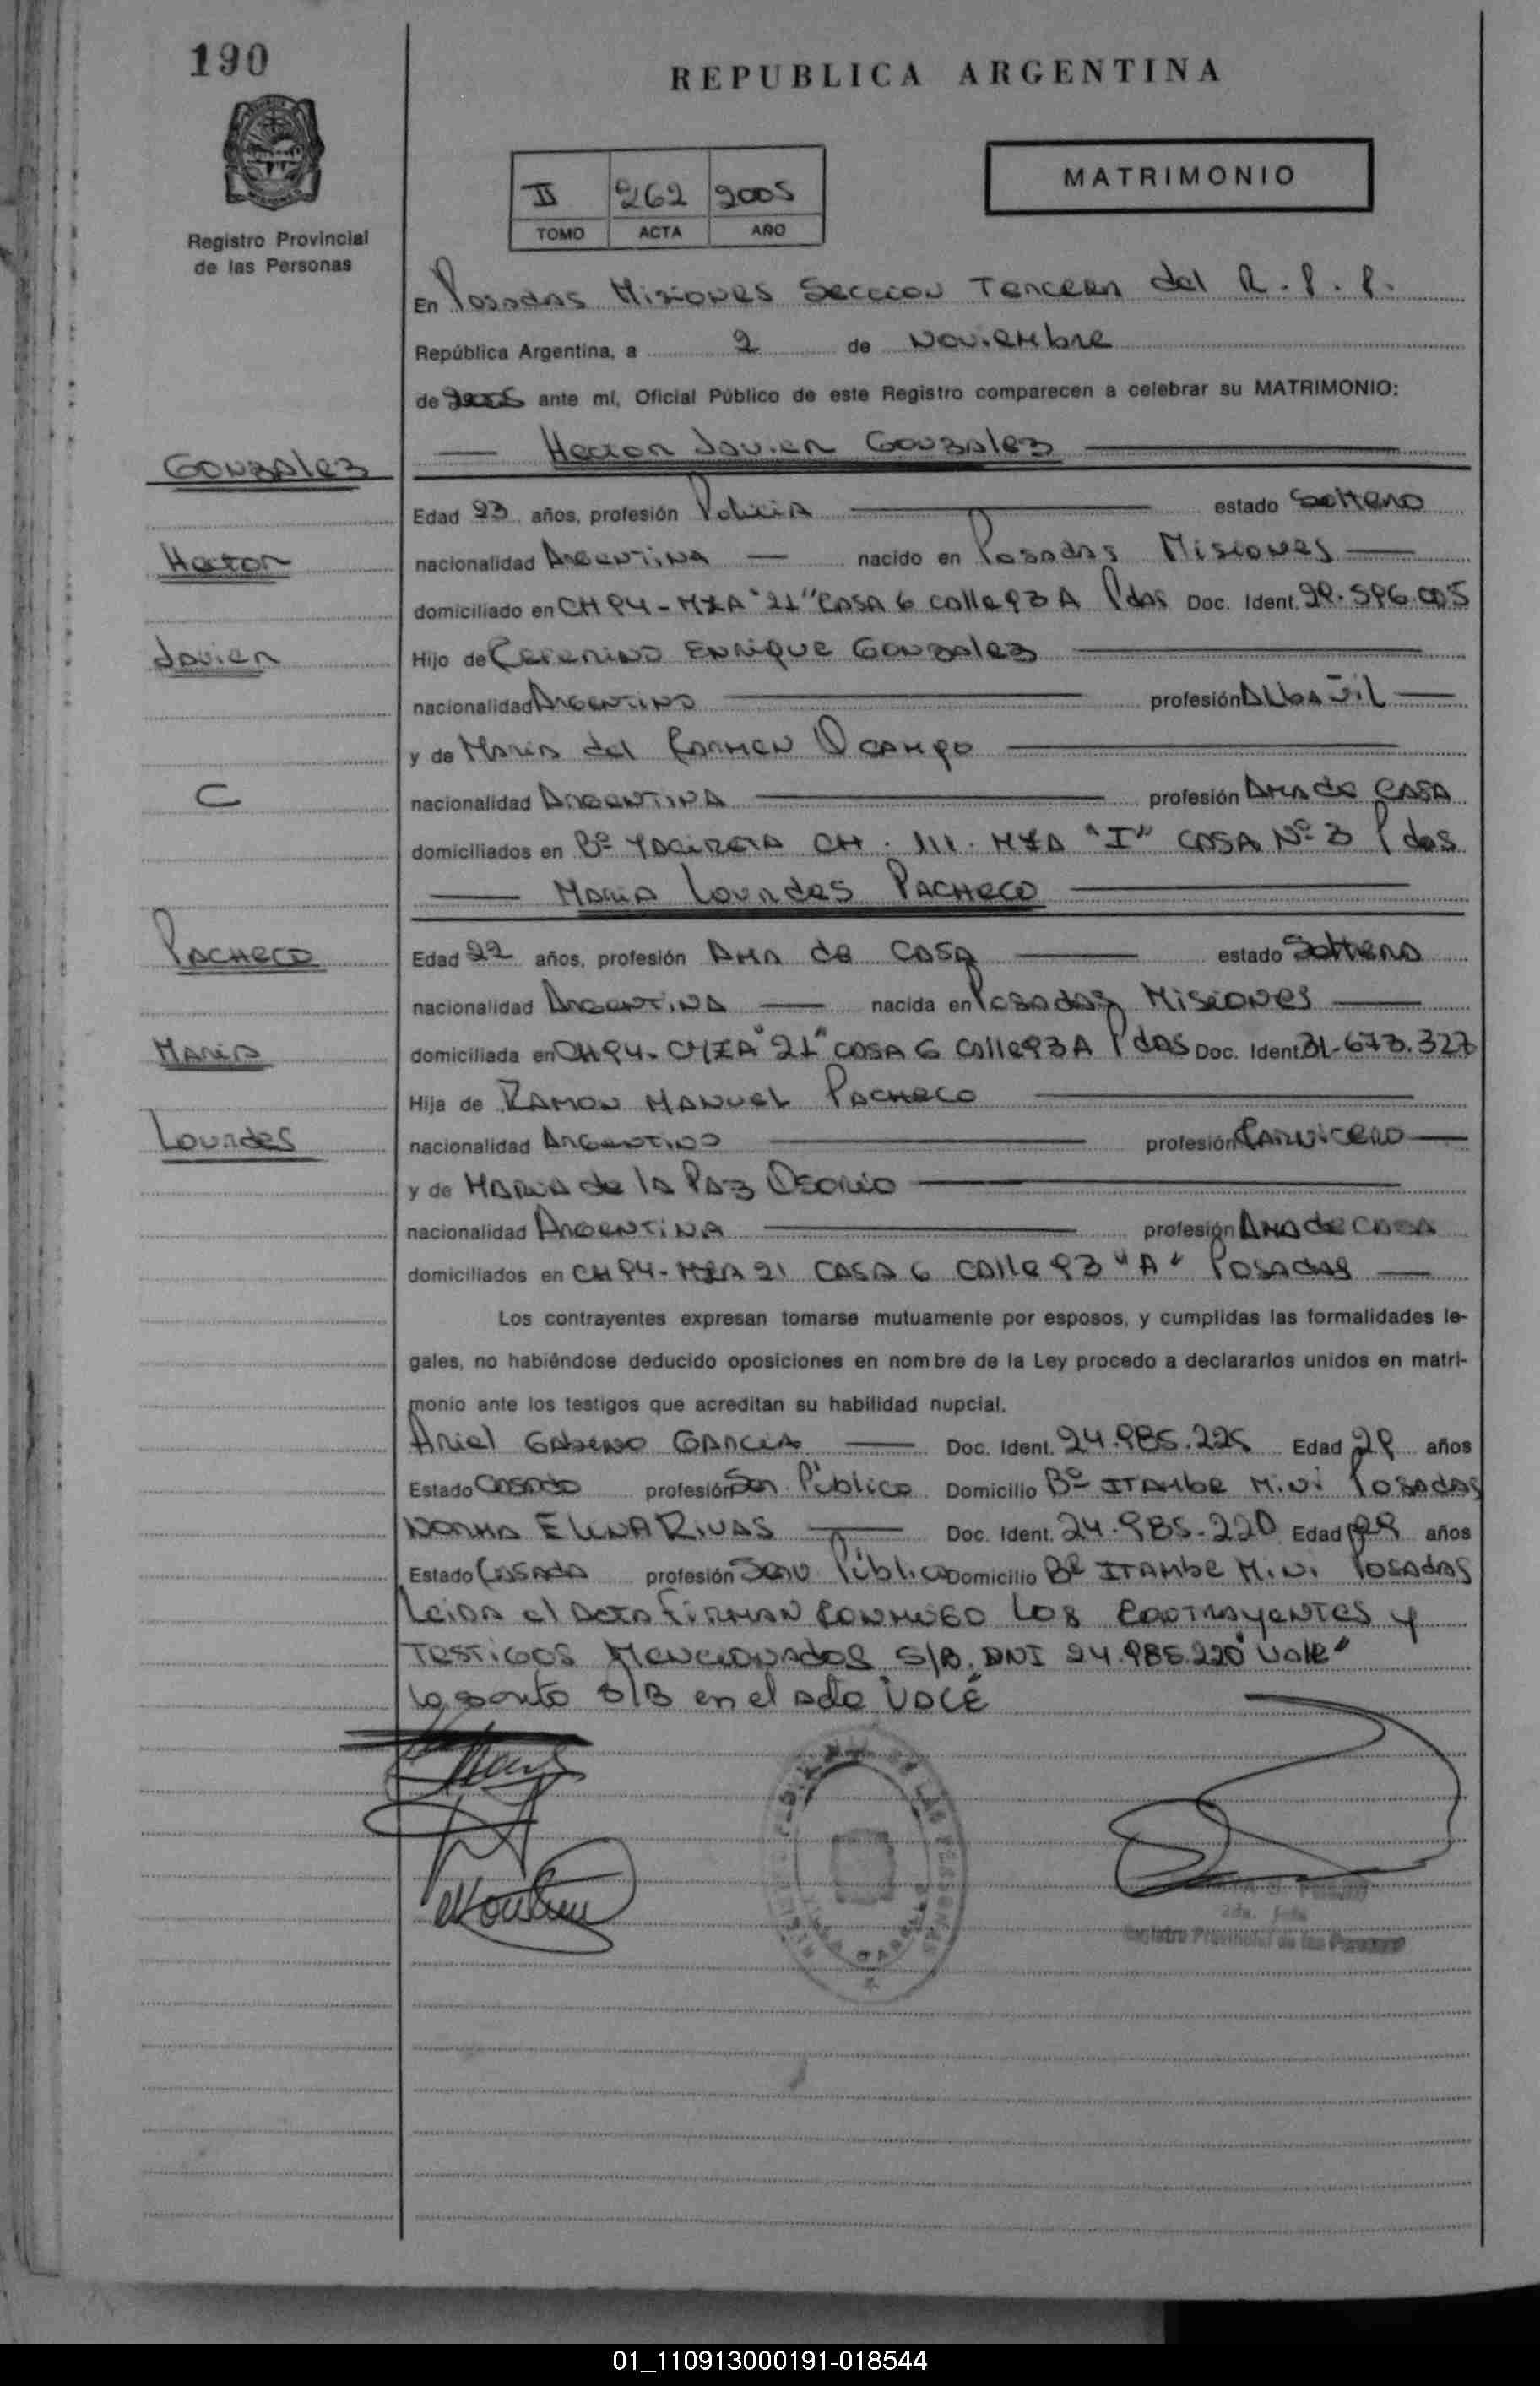 190
REPUBLICA ARGENTINA
MATRIMONIO
II 262 2005
TOMO ACTA AÑO
Registro Provincial
de las Personas
En Posadas Misiones Seccion Tercera del R.P.P.
República Argentina, a 2 de Noviembre
de 2005 ante mí, Oficial Público de este Registro comparecen a celebrar su MATRIMONIO:
Hector Javier Gonzalez
Gonzalez
Edad 23 años, profesión Policia estado Soltero
Hector
nacionalidad Argentina nacido en Posadas Misiones
domiciliado en CH 94 - MZA "21" CASA 6 calle 93 A Pdas Doc. Ident. 29.596.005
Javier
Hijo de Ceferino Enrique Gonzalez
nacionalidad Argentino profesión Albañil
y de Maria del Carmen Ocampo
C
nacionalidad Argentina profesión Ama de CASA
domiciliados en Bº YACIRETA CH. 111. MZA "I" CASA Nº 3 Pdas
Maria Lourdes Pacheco
Pacheco
Edad 22 años, profesión Ama de CASA estado Soltera
nacionalidad Argentina nacida en Posadas Misiones
Maria
domiciliada en CH 94 - MZA "21" CASA 6 Calle 93 A Pdas Doc. Ident. 31.673.327
Hija de Ramon Manuel Pacheco
Lourdes
nacionalidad Argentino profesión Carnicero
y de Maria de la Paz Osorio
nacionalidad Argentina profesión Ama de CASA
domiciliados en CH 94 - MZA 21 CASA 6 Calle 93 "A" Posadas
Los contrayentes expresan tomarse mutuamente por esposos, y cumplidas las formalidades le-
gales, no habiéndose deducido oposiciones en nombre de la Ley procedo a declararlos unidos en matri-
monio ante los testigos que acreditan su habilidad nupcial.
Ariel Gabino Garcia Doc. Ident. 24.985.225 Edad 29 años
Estado Casado profesión Ser. Público Domicilio Bº ITAMBE Mini Posadas
Norma Elena Rivas Doc. Ident. 24.985.220 Edad 29 años
Estado Casada profesión Serv Público Domicilio Bº ITAMBE Mini Posadas
Leida el Acta Firman conmigo Los Contrayentes y
Testigos Mencionados S/B. DNI 24.985.220 "Vale"
S/B en el acta
2da. Jefe
Registro Provincial de las Personas
01_110913000191-018544